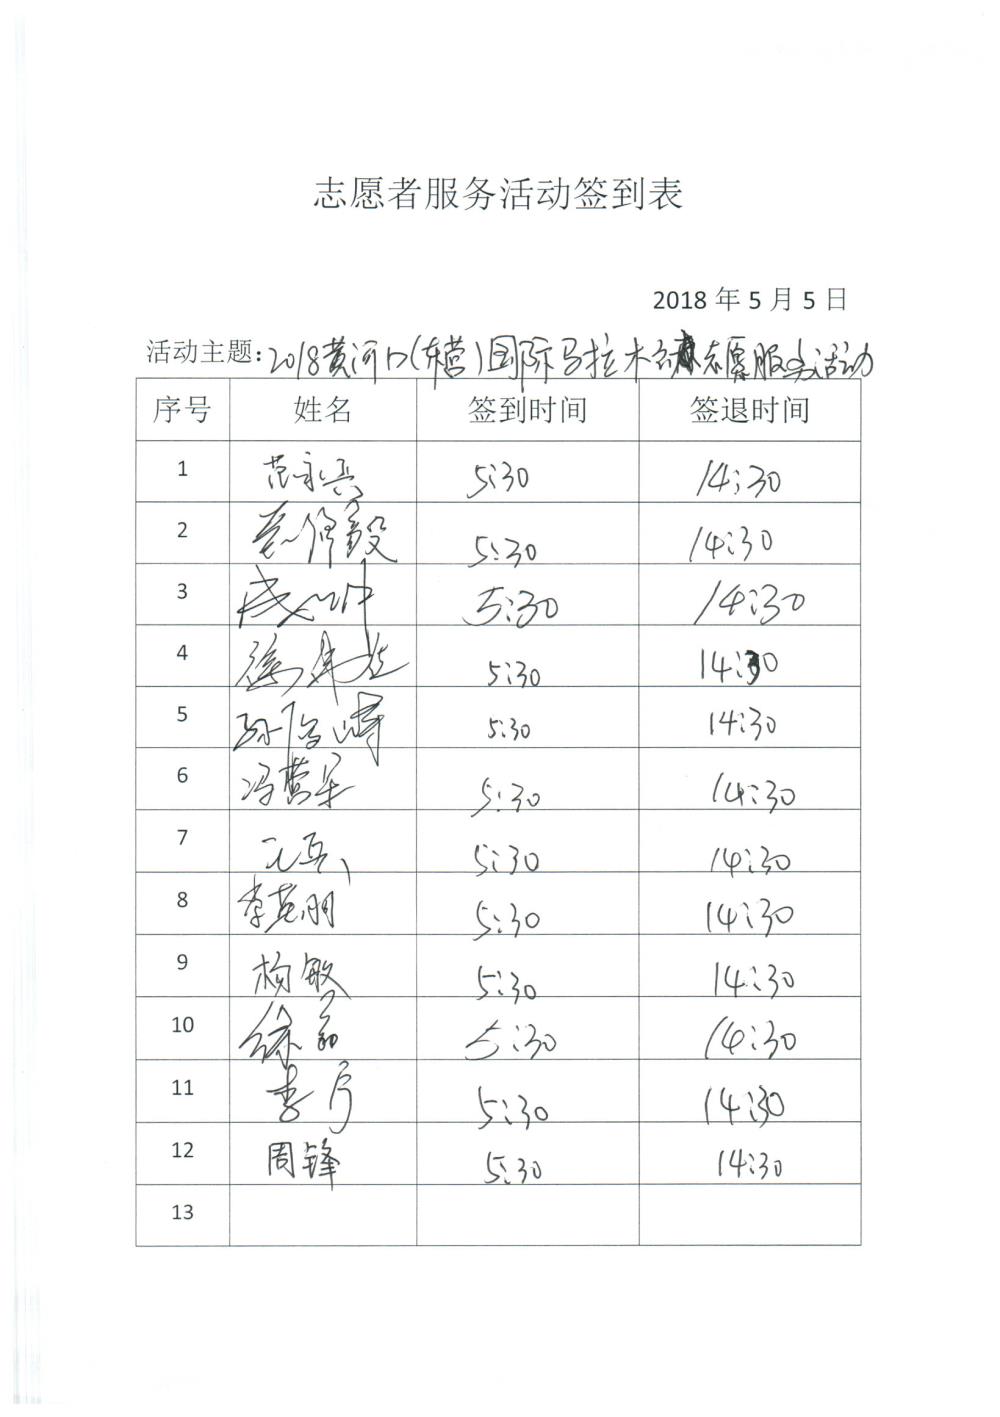 志愿者服务活动签到表
2018 年 5 月 5 日
活动主题: 2018黄河口(东营)国际马拉松志愿服务活动
序号 姓名 签到时间 签退时间
1 范永兵 5:30 14:30
2 5:30 14:30
3 5:30 14:30
4 5:30 14:30
5 5:30 14:30
6 冯营军 5:30 14:30
7 5:30 14:30
8 李英朋 5:30 14:30
9 杨敏 5:30 14:30
10 徐 5:30 14:30
11 李 5:30 14:30
12 周锋 5:30 14:30
13